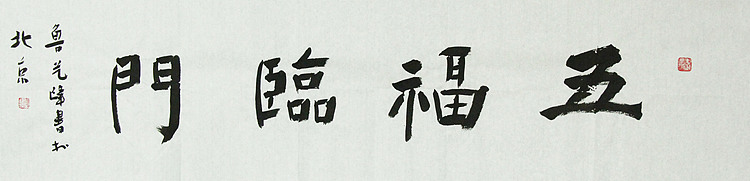 五福臨門
魯書於
北京